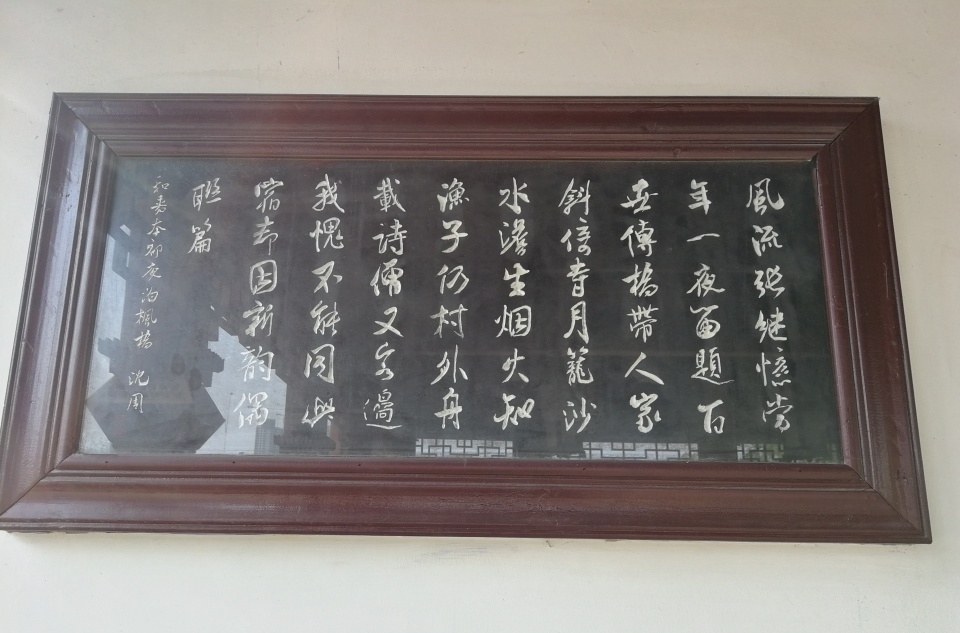 風流張繼憶當
年一夜留題百
世傳橋帶人家
斜倚寺月籠沙
水澹生烟火知
漁子仍村外舟
載詩僧又客邊
我愧不能同與
却因新韵偶
聯篇
和嘉本初夜泊楓橋 沈周